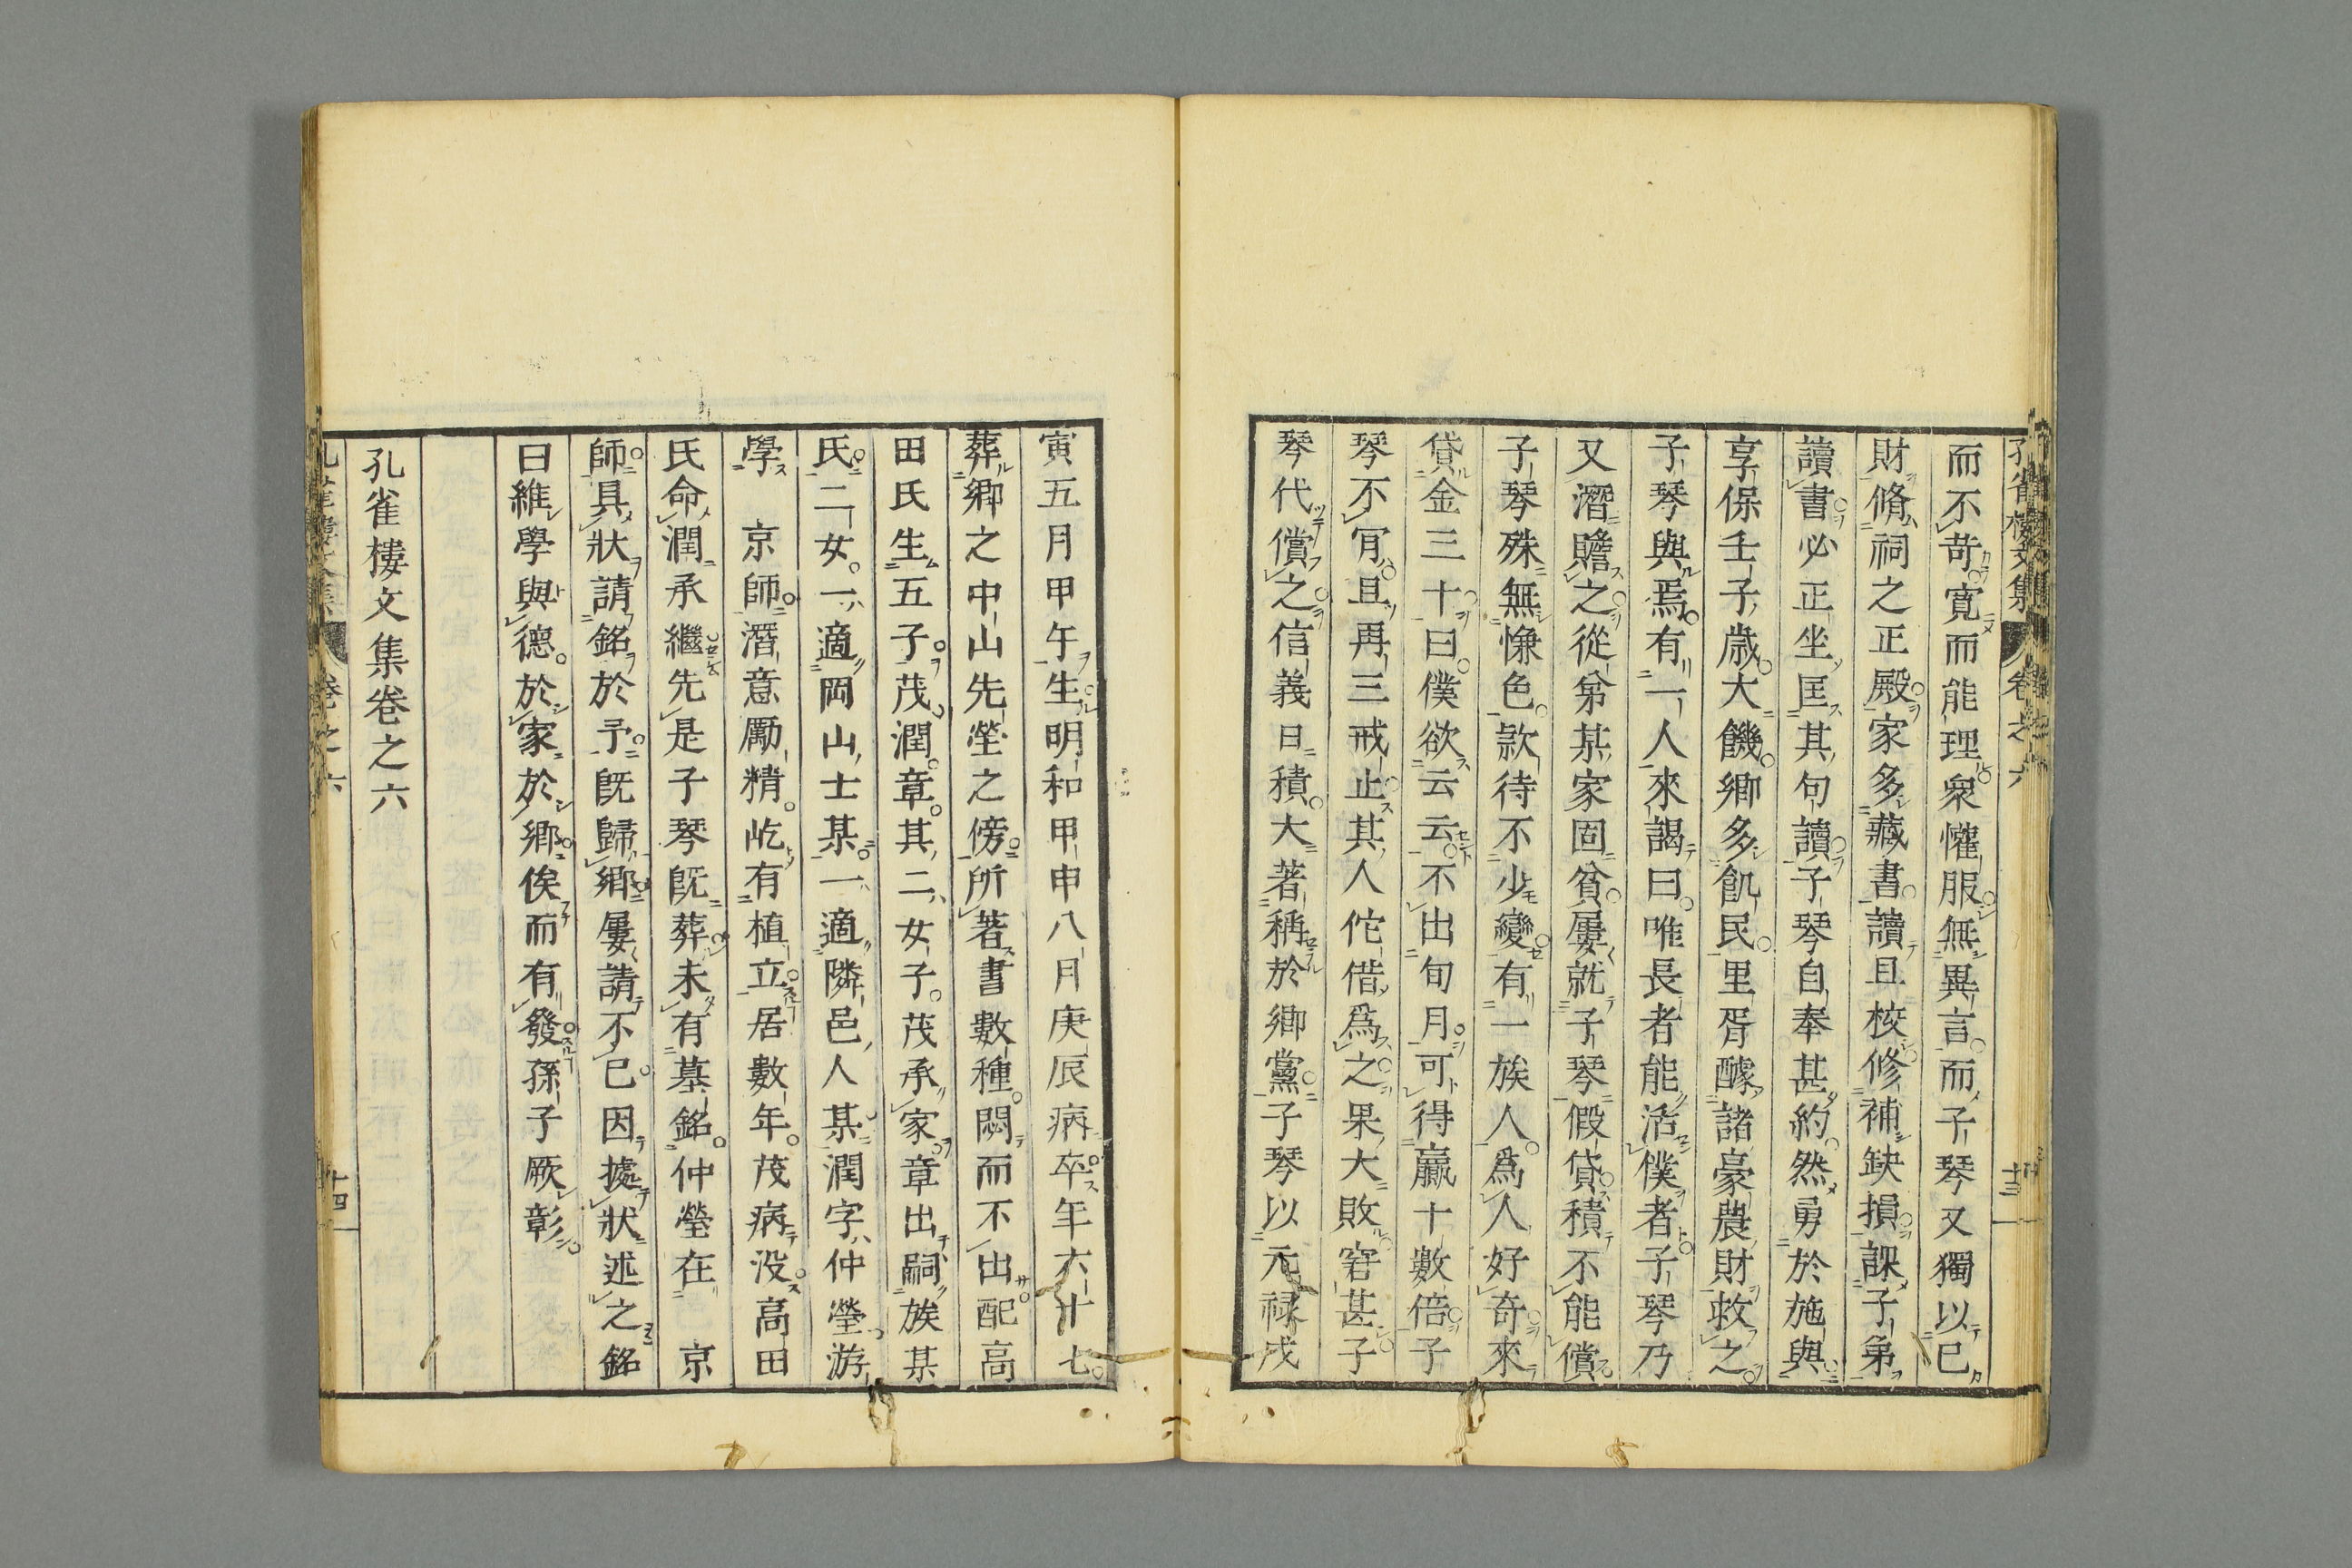 孔雀樓文集 卷之六 十三
而不苛寬而能理衆懽服無異言而子琴又獨以已
財脩祠之正殿家多藏書讀且校修補缺損課子弟
讀書必正坐匡其句讀子琴自奉甚約然勇於施與
享保壬子歲大饑鄉多飢民里胥醵諸豪農財救之
子琴與焉有一人來謁曰唯長者能活僕者子琴乃
又潛贍之從弟某家固貧屢就子琴假貸積不能償
子琴殊無慊色款待不少變有一族人爲人好奇來
貸金三十曰僕欲云云不出旬月可得贏十數倍子
琴不肎且再三戒止其人佗借爲之果大敗窘甚子
琴代償之信義日積大著稱於鄉黨子琴以元祿戊
寅五月甲午生明和甲申八月庚辰病卒年六十七
葬鄉之中山先塋之傍所著書數種悶而不出配高
田氏生五子茂潤章其二女子茂承家章出嗣族某
氏二女一適岡山士某一適隣邑人某潤字仲瑩游
學 京師潛意勵精屹有植立居數年茂病没高田
氏命潤承繼先是子琴旣葬未有墓銘仲瑩在 京
師具狀請銘於予旣歸鄉屢請不已因據狀述之銘
曰維學與德於家於鄉俟而有發孫子厥彰
孔雀樓文集卷之六
孔雀樓文集 卷之六 十四